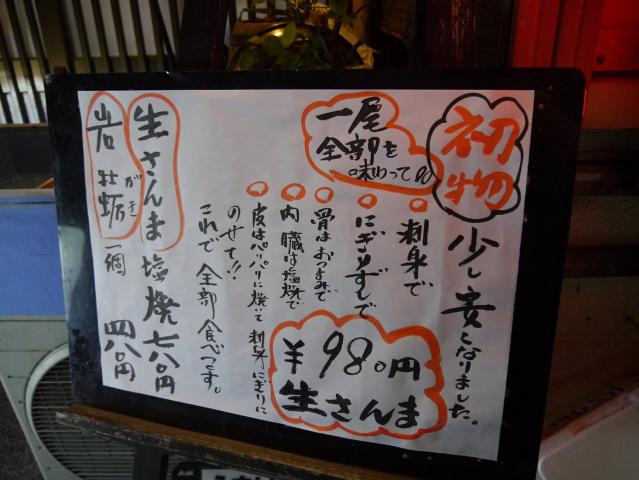 初物
少し安くなりました。
一尾
全部を
味わって
刺身で
にぎりずしで
骨はおつまみで
内臓は塩焼で
皮はパリパリに焼いて刺身にぎりに
のせて!!
これで全部食べつくす。
¥980円
生さんま
生さんま塩焼 七八〇円
岩牡蛎 一個 四八〇円
がき